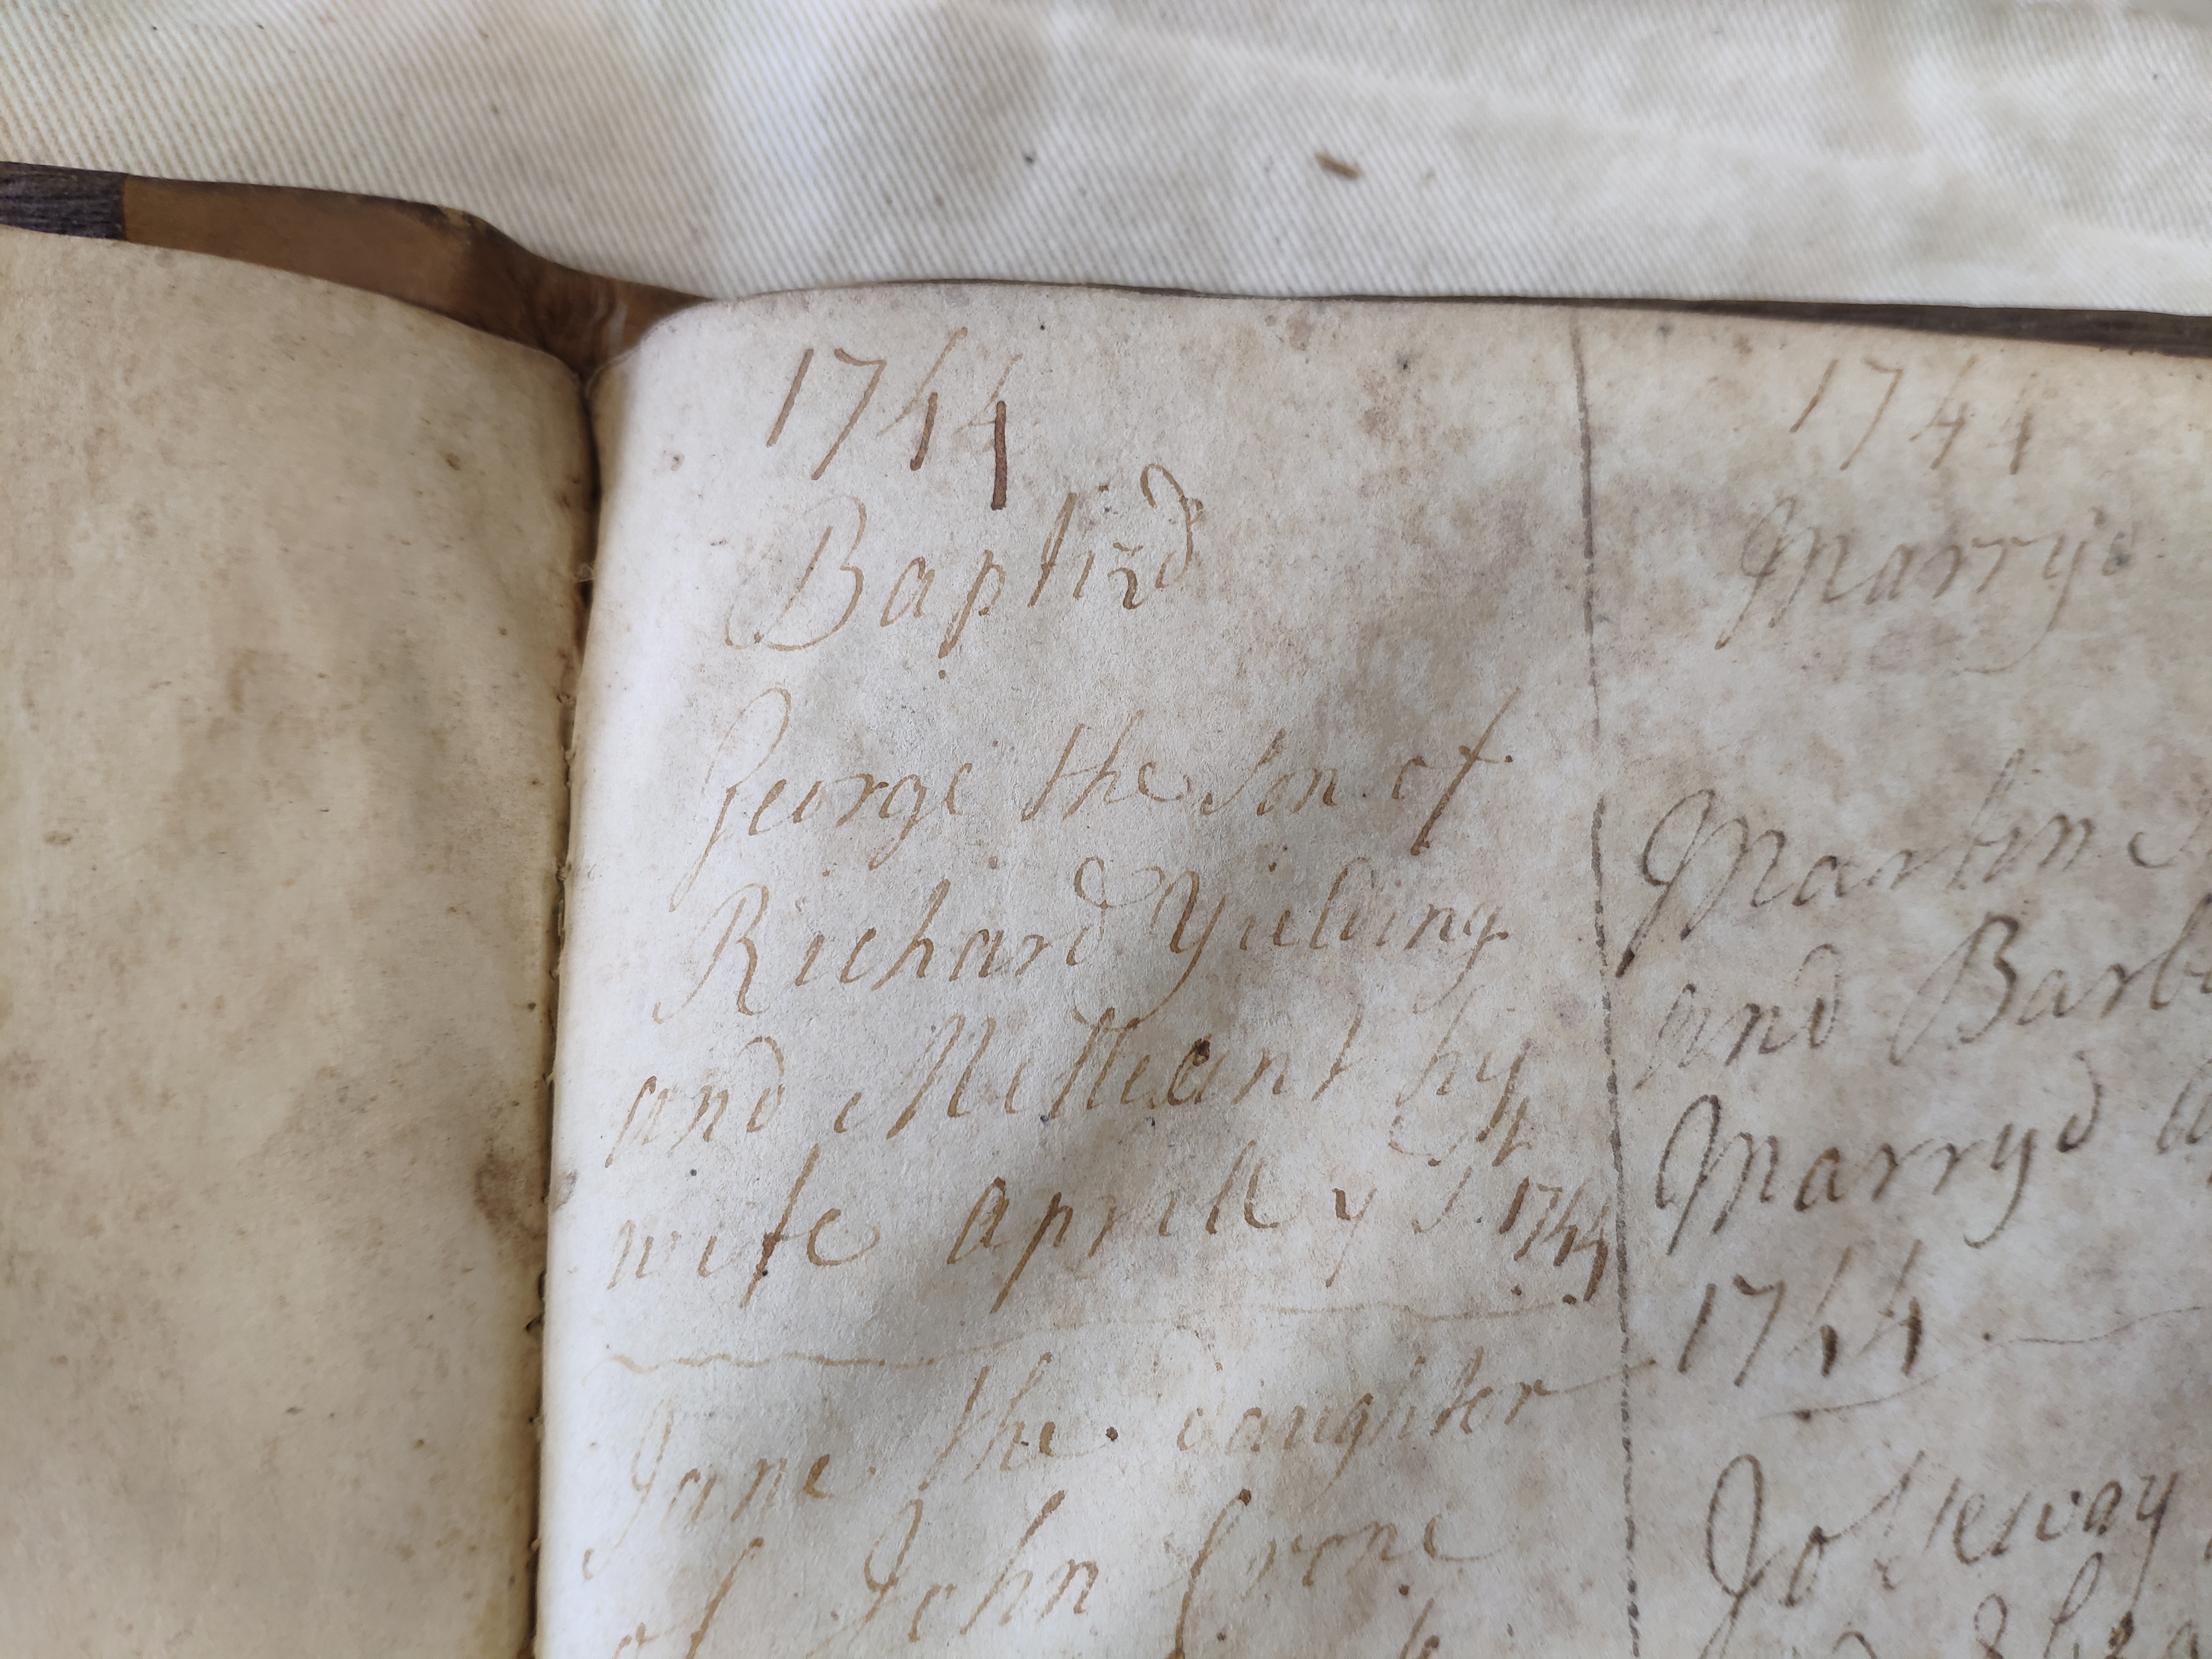 1744
Baptizd
George the son of
Richard Yielding
and Millicant hy
wife aprill ye 1. 1744
Jane the daughter
of John Crone
1744
Marryd
Martin
and Barb
Marryd
1744